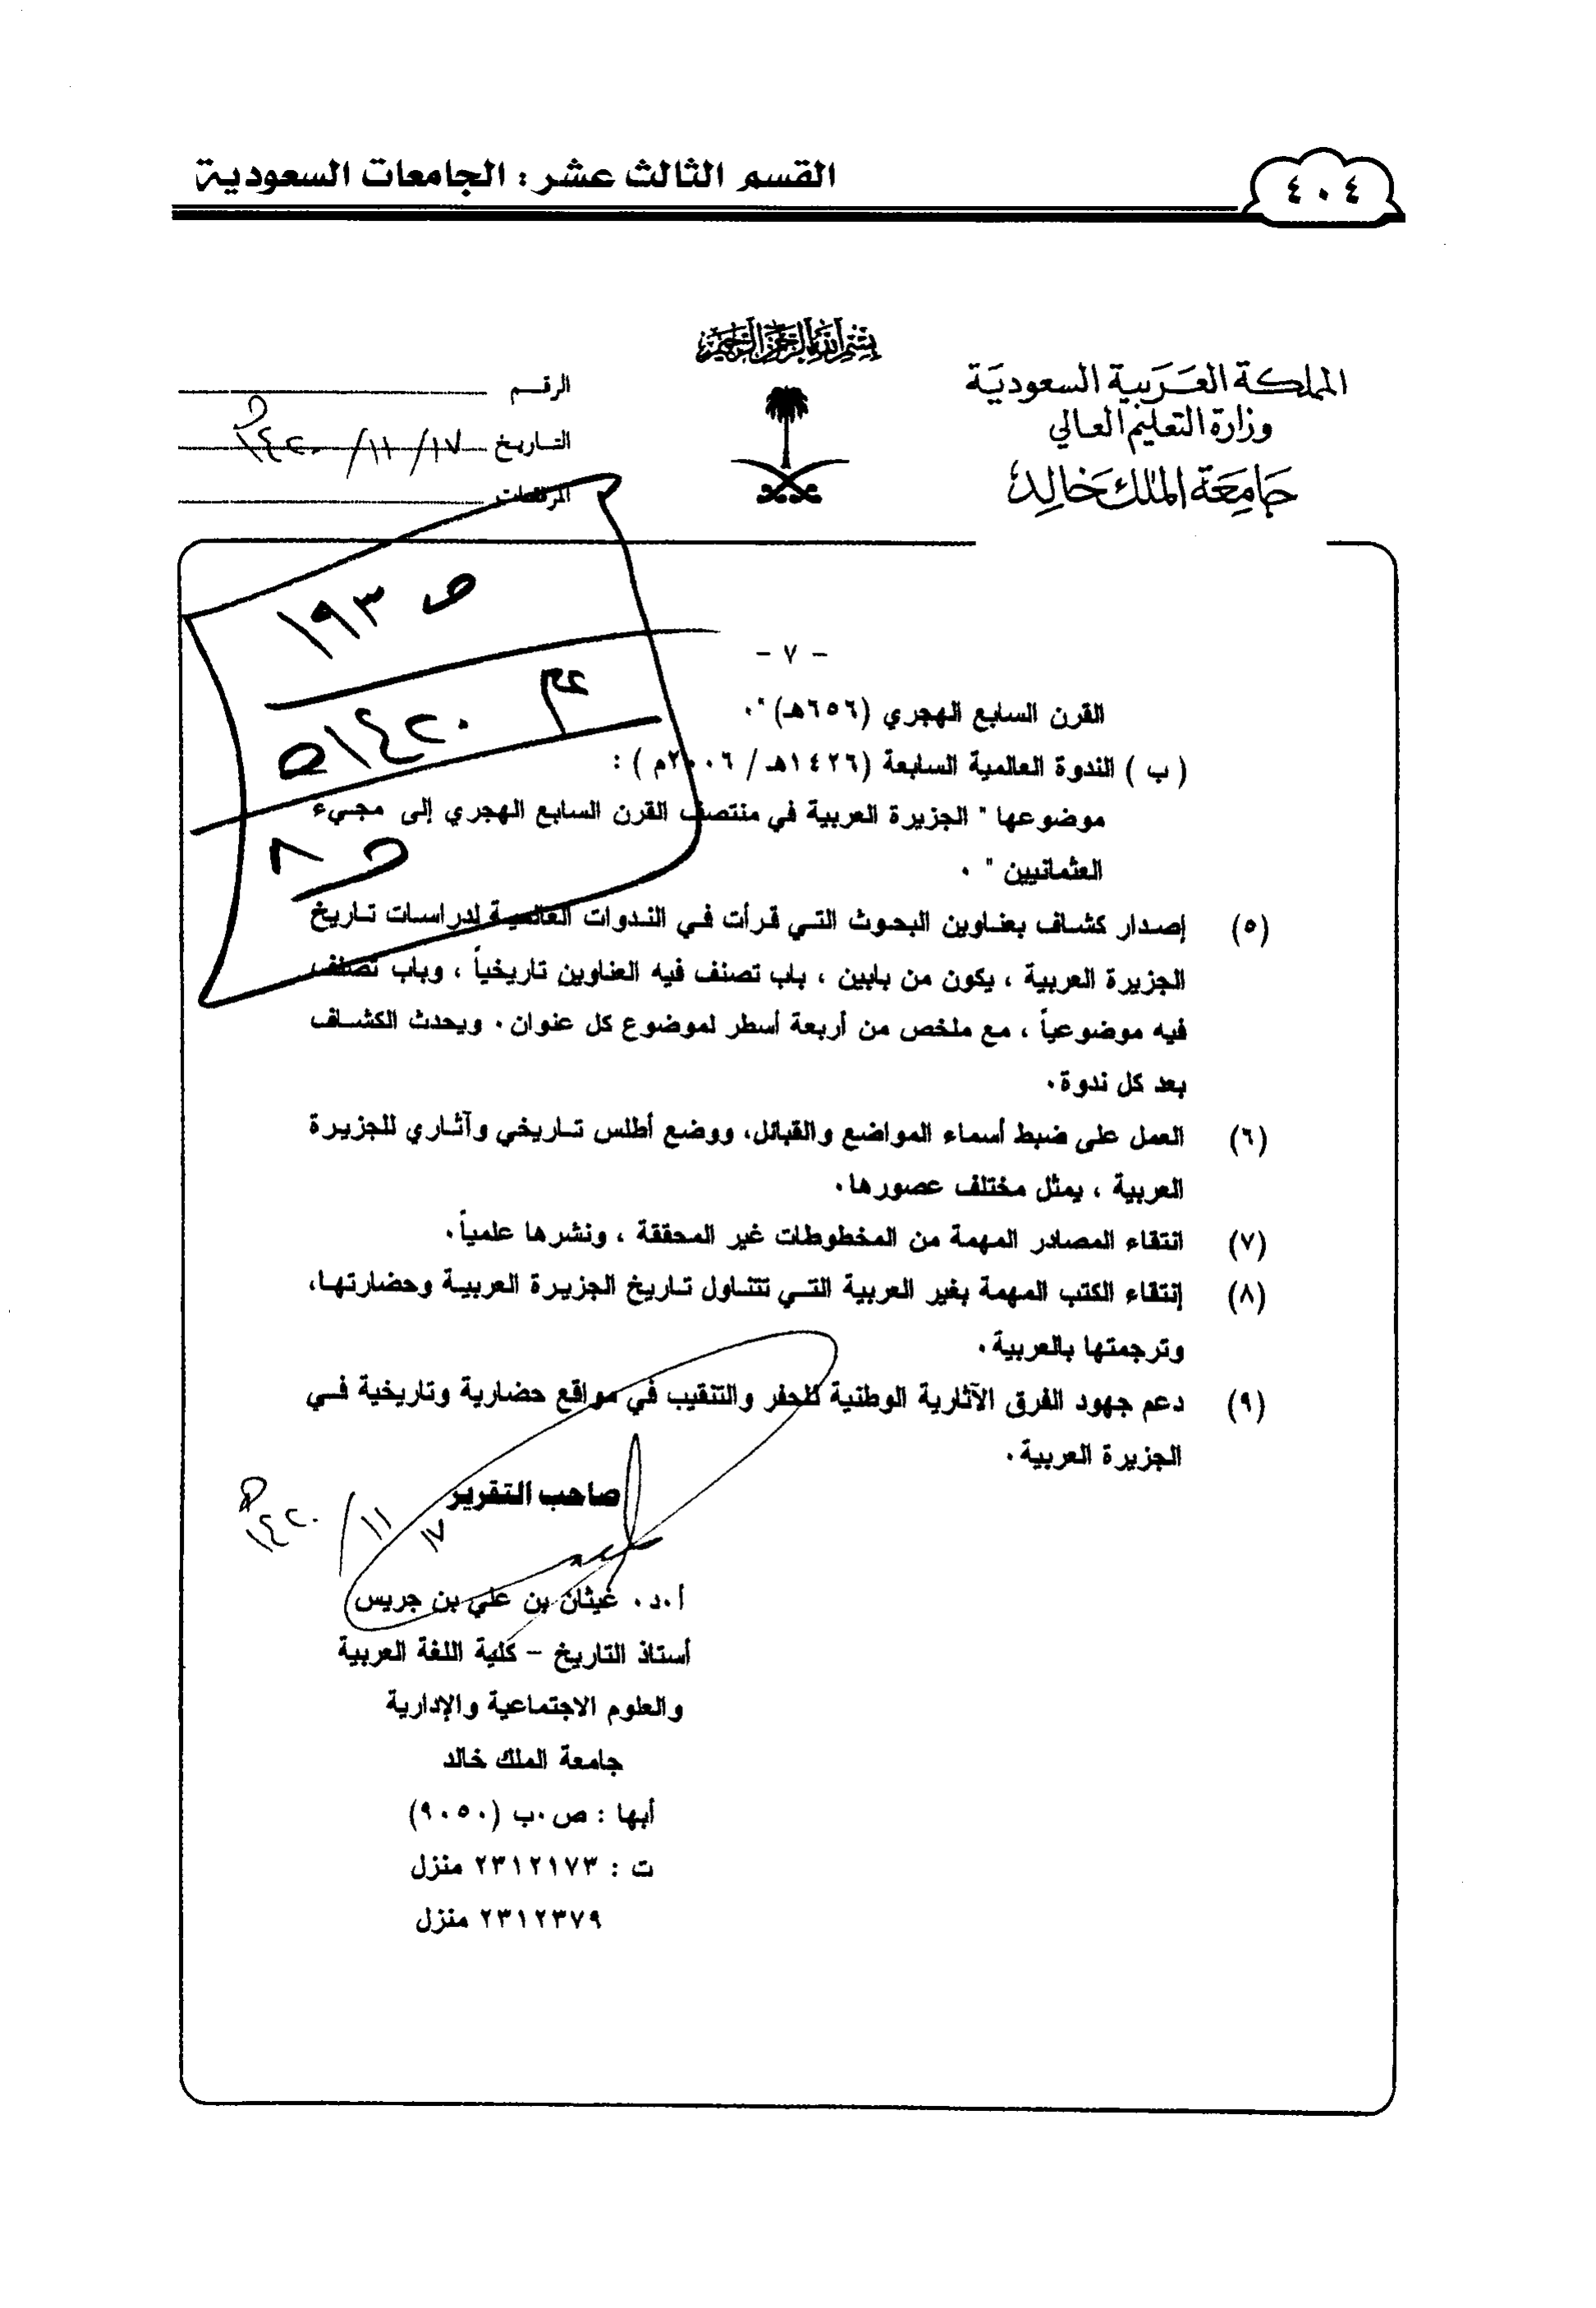 ٤٠٤
القسم الثالث عشر : الجامعات السعودية
بسم الله الرحمن الرحيم
المملكة العربية السعودية
وزارة التعليم العالي
جامعة الملك خالد
الرقم
التاريخ ١٧/ ١١/ ١٤٢٠هـ
المرفقات
ص ١٩٣
١٤٢٠هـ
- ٧ -
القرن السابع الهجري (٦٥٦هـ)".
( ب ) الندوة العالمية السابعة (١٤٢٦هـ / ٢٠٠٦م ) :
موضوعها " الجزيرة العربية في منتصف القرن السابع الهجري إلى مجيء
العثمانيين " .
(٥) إصدار كشاف بعناوين البحوث التي قرأت في الندوات العالمية لدراسات تاريخ
الجزيرة العربية ، يكون من بابين ، باب تصنف فيه العناوين تاريخياً ، وباب تصنف
فيه موضوعياً ، مع ملخص من أربعة أسطر لموضوع كل عنوان . ويحدث الكشاف
بعد كل ندوة .
(٦) العمل على ضبط أسماء المواضع والقبائل، ووضع أطلس تاريخي وآثاري للجزيرة
العربية ، يمثل مختلف عصورها .
(٧) انتقاء المصادر المهمة من المخطوطات غير المحققة ، ونشرها علمياً .
(٨) إنتقاء الكتب المهمة بغير العربية التي تتناول تاريخ الجزيرة العربية وحضارتها،
وترجمتها بالعربية .
(٩) دعم جهود الفرق الآثارية الوطنية للحفر والتنقيب في مواقع حضارية وتاريخية في
الجزيرة العربية .
صاحب التقرير
١٧ /١١ / ١٤٢٠هـ
أ.د. غيثان بن علي بن جريس
أستاذ التاريخ - كلية اللغة العربية
والعلوم الاجتماعية والإدارية
جامعة الملك خالد
أبها : ص.ب (٩٠٥٠)
ت : ٢٣١٢١٧٣ منزل
٢٣١٢٣٧٩ منزل